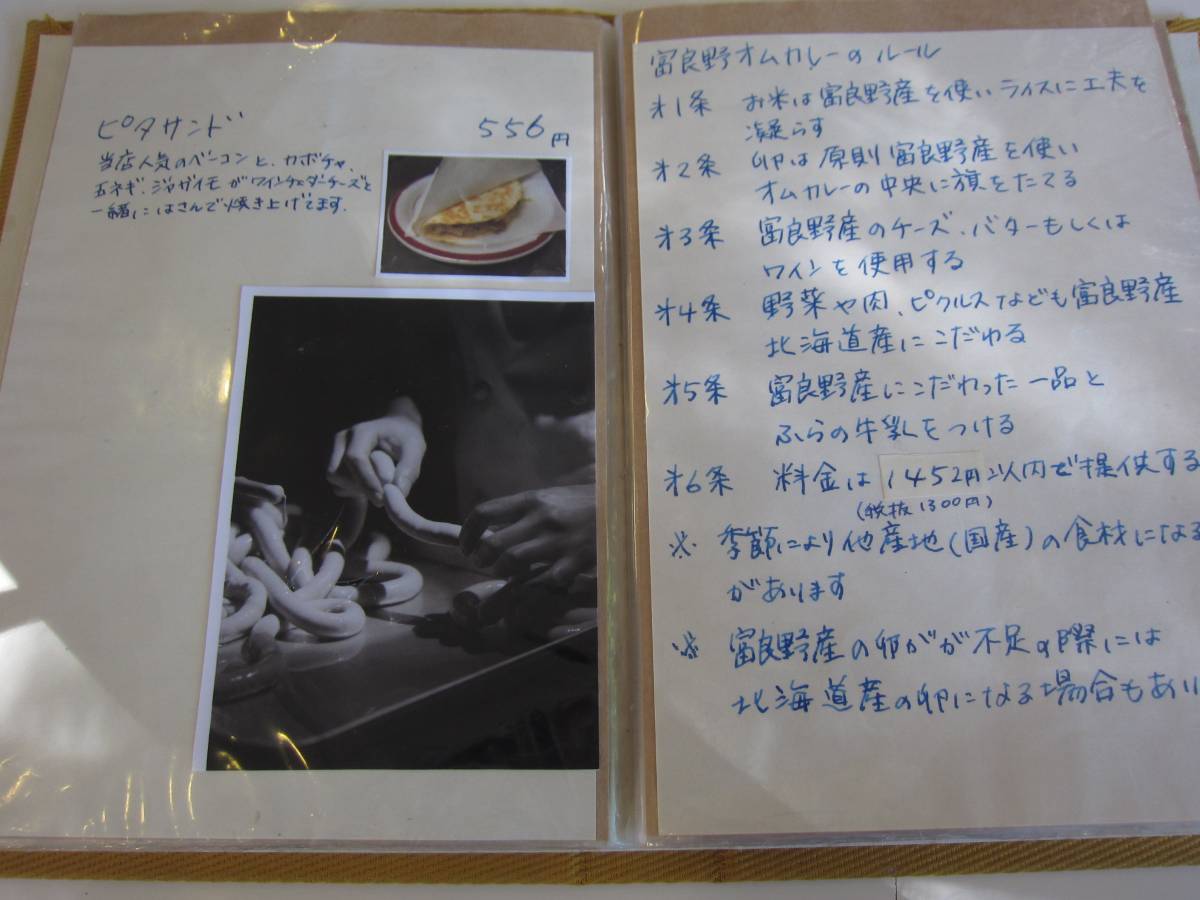 ピタサンド 556円
当店人気のベーコンと、カボチャ、
玉ネギ、ジャガイモがワインチェダーチーズと
一緒にはさんで焼き上げてます。
富良野オムカレーのルール
オ1条 お米は富良野産を使いライスに工夫を
凝らす
オ2条 卵は原則富良野産を使い
オムカレーの中央に旗をたてる
オ3条 富良野産のチーズ、バターもしくは
ワインを使用する
オ4条 野菜や肉、ピクルスなども富良野産
北海道産にこだわる
オ5条 富良野産にこだわった一品と
ふらの牛乳をつける
オ6条 料金は1452円以内で提供する
(税抜1300円)
※ 季節により他産地(国産)の食材になる
があります
※ 富良野産の卵がが不足の際には
北海道産の卵になる場合もあり